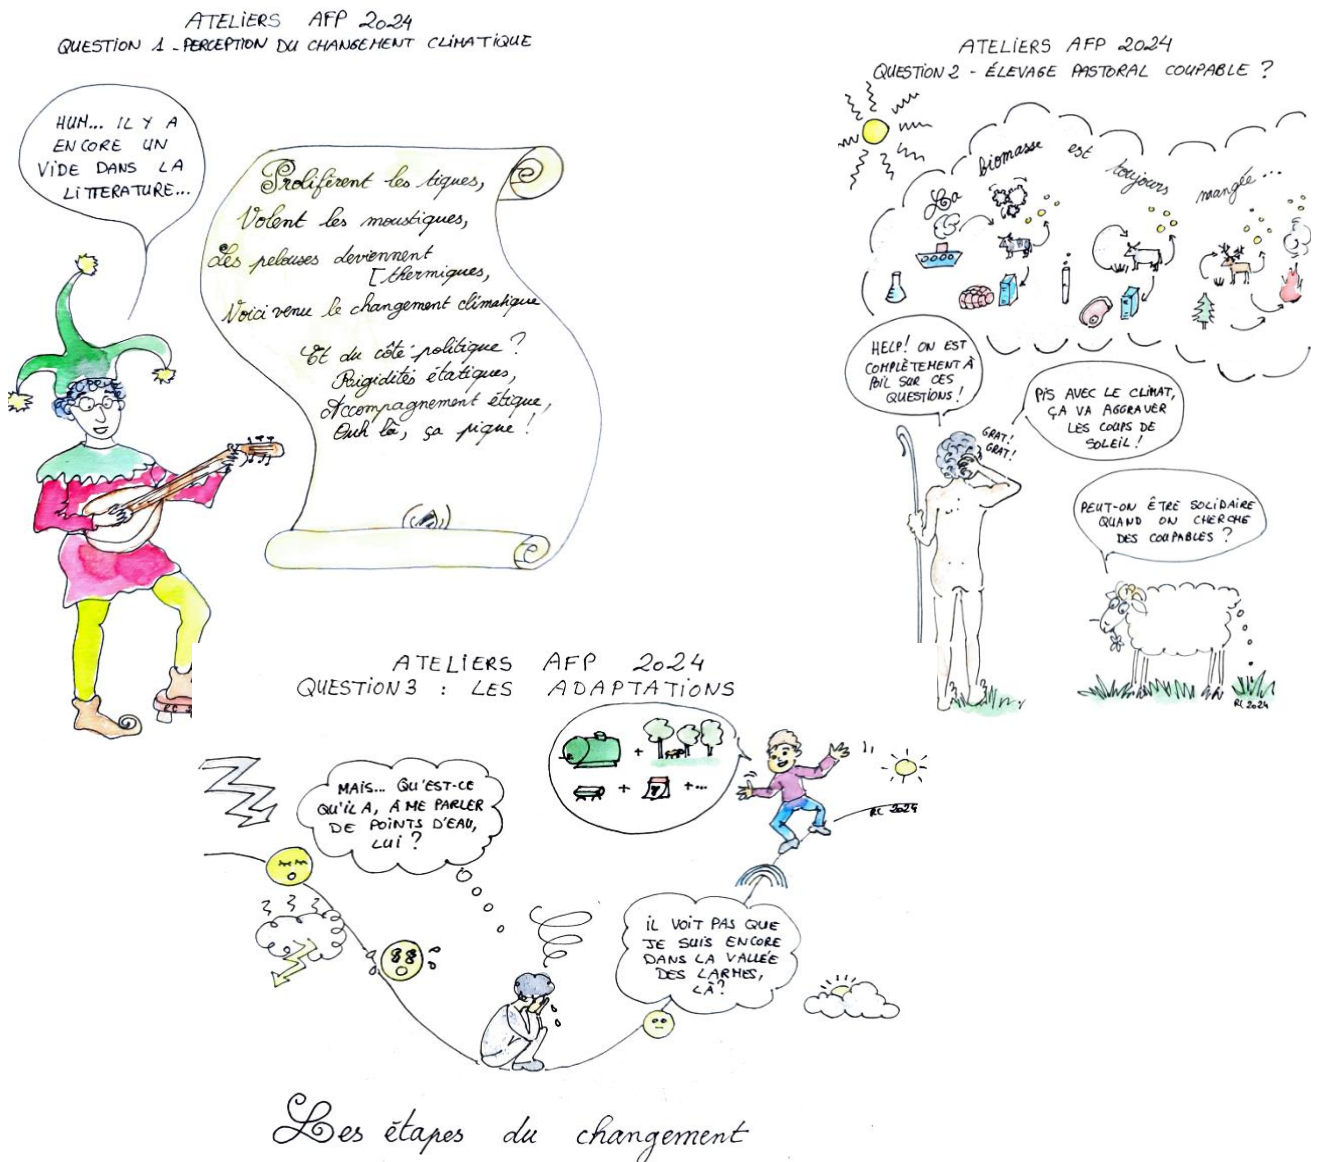 ATELIERS AFP 2024
QUESTION 1 - PERCEPTION DU CHANGEMENT CLIMATIQUE
HUM... IL Y A
ENCORE UN
VIDE DANS LA
LITTERATURE...
Prolifèrent les tiques,
Volent les moustiques,
Les pelouses deviennent
[thermiques,
Voici venu le changement climatique
Et du côté politique ?
Rigidités étatiques,
Accompagnement étique,
Ouh là, ça pique !
ATELIERS AFP 2024
QUESTION 2 - ÉLEVAGE PASTORAL COUPABLE ?
La biomasse est toujours mangée...
HELP! ON EST
COMPLÈTEMENT À
POIL SUR CES
QUESTIONS !
GRAT!
GRAT!
PIS AVEC LE CLIMAT,
ÇA VA AGGRAVER
LES COUPS DE
SOLEIL !
PEUT-ON ÊTRE SOLIDAIRE
QUAND ON CHERCHE
DES COUPABLES ?
RC 2024
ATELIERS AFP 2024
QUESTION 3 : LES ADAPTATIONS
MAIS... QU'EST-CE
QU'IL A, À ME PARLER
DE POINTS D'EAU,
LUI ?
+
+ +...
RC 2024
IL VOIT PAS QUE
JE SUIS ENCORE
DANS LA VALLÉE
DES LARMES,
LÀ?
Les étapes du changement